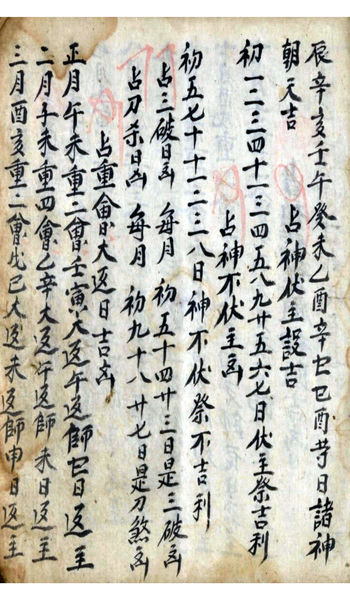 辰辛亥壬午癸未乙酉辛巳己酉等日諸神
朝天吉　占神伏主設吉
初一二三四十一三四五八九廿五六七日伏主祭吉利
占神不伏主凶
初五七十十一二三八日神不伏祭不吉利
占三破日凶　每月　初五十四廿三日是三破凶
占刀杀日凶　每月　初九十八廿七日是刀煞凶
占重會日大返日吉凶
正月午未重二會壬寅大返午返師巳日返主
二月子未重四會乙辛大返午返師未日返主
三月酉亥重一會戊巳大返未返師申日返主